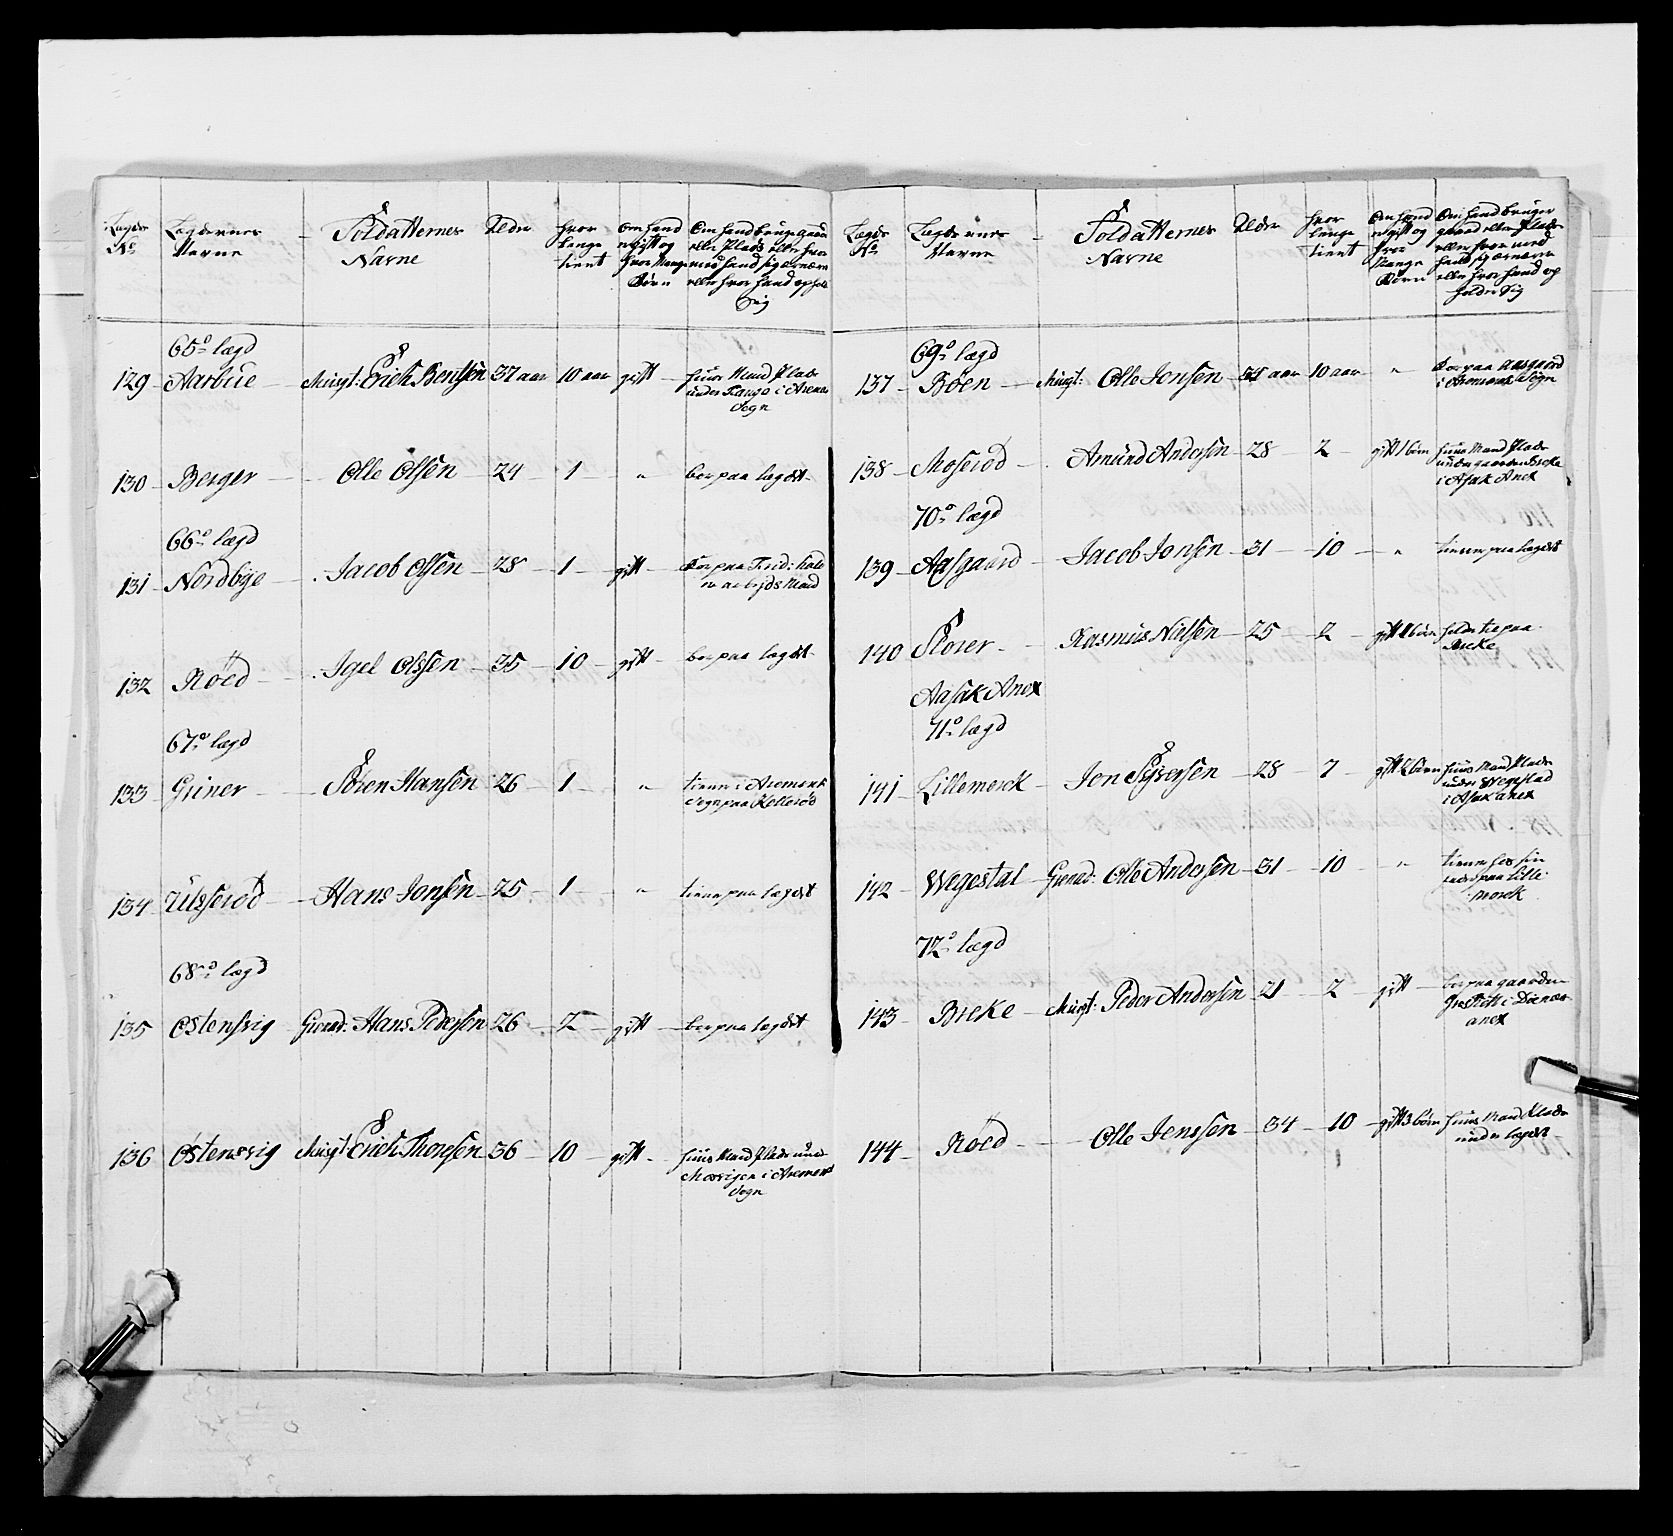 Lægds No
Lægdernes Navne
Soldatternes Navne
Alder
hvor lenge tient
Om hand er gift og hvor Mange Børn
Om hand bruger gaard eller Plads eller hvor med hand sig ernærer eller hvor hand opholder Sig
65de lægd
129 Aarbue Musqt: Erich Bentsen 37 aar 10 aar gift huus Mand Plads
under Tange i Aremar
Sogn
130 Berger Olle Olsen 24 1 " boer paa lægdet
66de lægd
131 Nordbye Jacob Olsen 28 1 gift Boer paa Frid: hald
er arbejds Mand
132 Røed Igel Olssen 35 10 gift boer paa lægdet
67de lægd
133 Griner Sören Hansen 26 1 " tiener i Aremark
Sogn paa Kollerød
134 Ulsserød Hans Jonsen 25 1 " tiener paa lægdet
68de lægd
135 Ostensvig Grenad: Hans Pedersen 26 2 gift boer paa lægdet
136 Ostensvig Musqt: Erich Thoresen 36 10 gift huus Mand Plads under
i Aremark
Sogn
Lægds No
Lægdernes Navne
Soldatternes Navne
Alder
hvor lenge tient
Om hand er gift og hvor Mange Børn
Om hand bruger gaard eller Plads eller hvor med hand sig ernærer eller hvor hand opholder Sig
69de lægd
137 Bøen Musqt: Olle Jonsen aar 10 aar " Boer paa Aasgaard
i Aremark Sogn
138 Moserød Amund Andersen 28 2 gift 1 børn huus Mand Plads
under gaarden Breke
i Asak Anex
70de lægd
139 Aasgaard Jacob Jonsen 31 10 " tiener paa lægdet
140 Storer Rasmus Nielsen 25 2 gift børn holder til paa
Breke
Aasak Anex
71de lægd
141 Lillemerck Jon Syversen 28 7 gift 2 børn huus Mand Plads
under Wegestad
i Asak anex
142 Wegestal Grenad: Olle Andersen 31 10 " tiener hos sin
fader paa Lille
morck
72de lægd
143 Breke Musqt: Peder Andersen 21 2 gift boer paa gaarden
i
anex
144 Røed Olle Jenssen 34 10 gift 3 børn huus Mand Plads
under lægdet